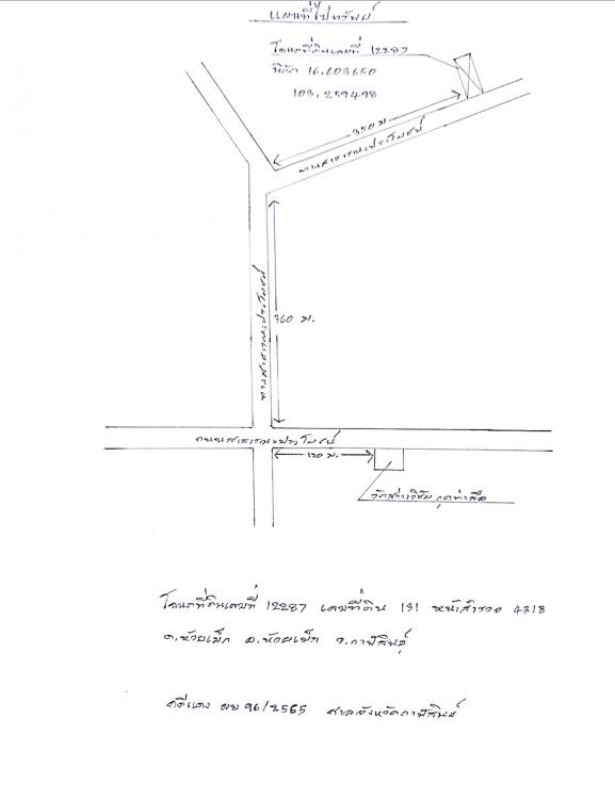 แผนที่ไปทรัพย์
โฉนดที่ดินเลขที่ 12287
พิกัด 16.603650
103.259498
350 ม.
ทางสาธารณะประโยชน์
360 ม.
ทางสาธารณะประโยชน์
ถนนสาธารณะประโยชน์
130 ม.
โฉนดที่ดินเลขที่ 12287 เลขที่ดิน 191 หน้าสำรวจ 4313
ต.ห้วยเม็ก อ.ห้วยเม็ก จ.กาฬสินธุ์
คดีแดง ผบ 96/2565 ศาลจังหวัดกาฬสินธุ์